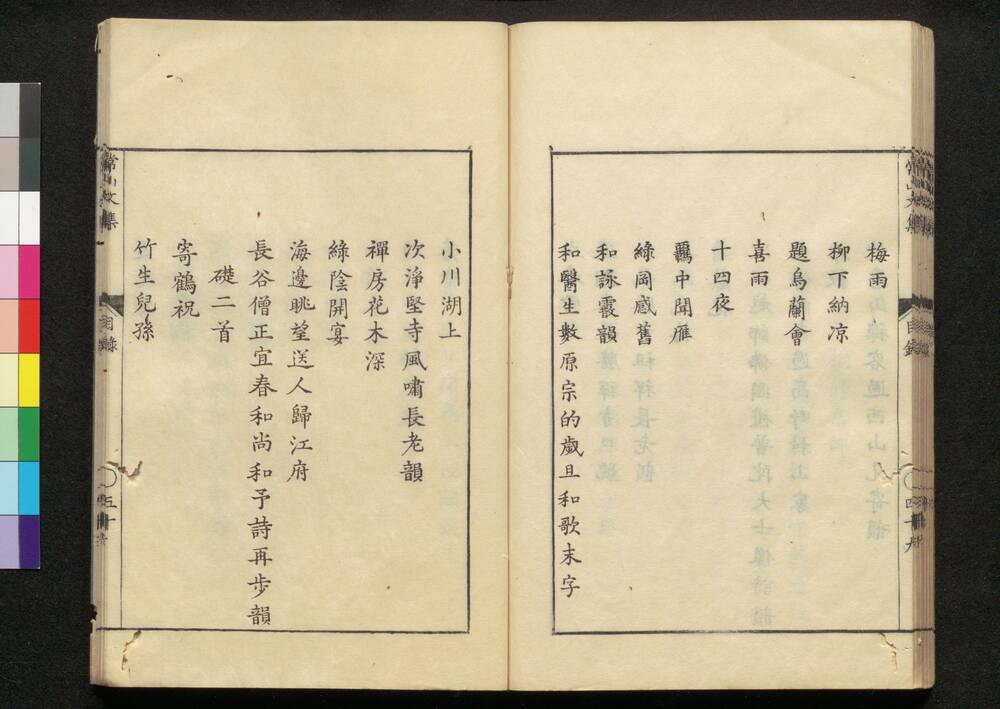 梅雨
柳下納凉
題烏蘭會
喜雨
十四夜
羈中聞雁
綠岡感舊
和詠霞韻
和醫生數原宗的歲旦和歌末字
常山文集
目錄
四十九
小川湖上
次淨堅寺風嘯長老韻
禪房花木深
綠陰開宴
海邊眺望送人歸江府
長谷僧正宜春和尚和予詩再步韻
礎二首
寄鶴祝
竹生兒孫
常山文集
目錄
五十